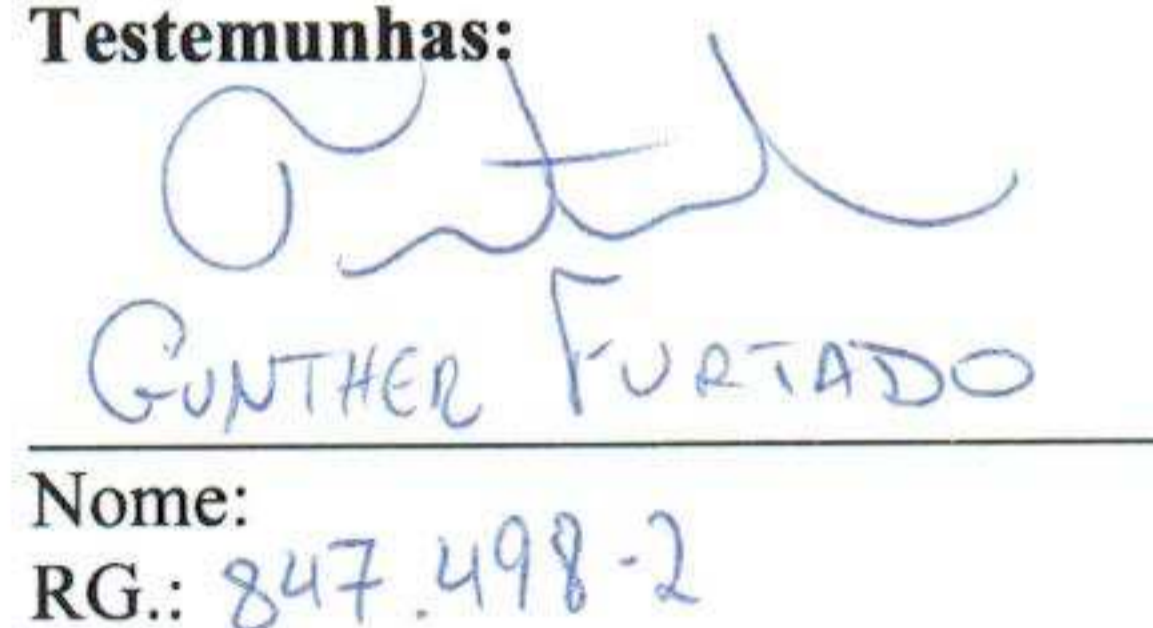 Testemunhas:
GUNTHER FURTADO
Nome:
RG.: 847.498-2